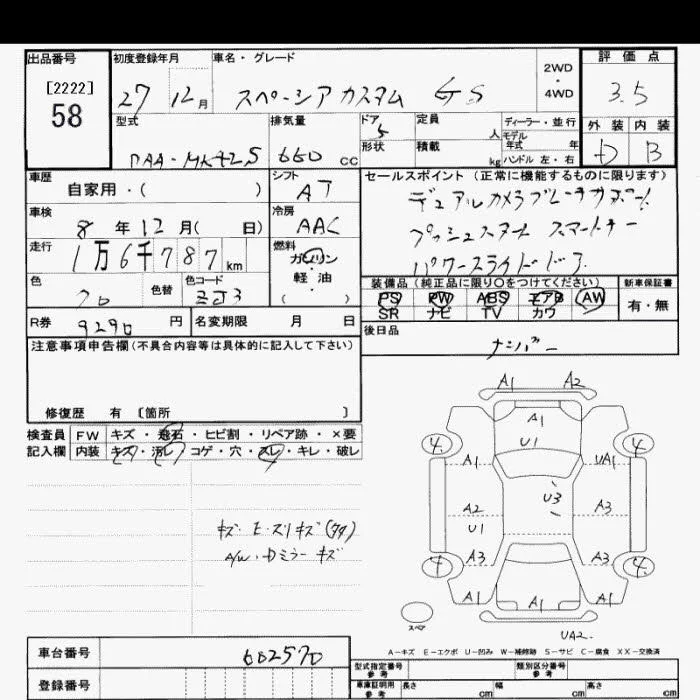 出品番号
[2222]
58
初度登録年月
27 12月
車名・グレード
スペーシア カスタム GS
2WD
・
4WD
評価点
3.5
外装 内装
D B
型式
DAA-MK42S
排気量
660 cc
ドア
5
形状
定員
人
積載
kg
ディーラー・並行
モデル年式 年
ハンドル 左・右
車歴
自家用・( )
シフト
AT
車検
8 年 12 月( 日)
冷房
AAC
走行
1万6千787km
燃料
ガソリン
・
軽・油
( )
色
クロ
色替
色コード
ZJ3
R券
9290 円
名変期限 月 日
セールスポイント(正常に機能するものに限ります)
デュアルカメラブレーキサポート
プッシュスタート スマートキー
パワースライドドア
装備品(純正品に限り〇をつけてください)
PS PW ABS エアB AW
SR ナビ TV カワ
新車保証書
有・無
後日品
ナンバー
注意事項申告欄(不具合内容等は具体的に記入して下さい)
修復歴 有 〔箇所 〕
検査員
記入欄
FW キズ・飛石・ヒビ割・リペア跡・×要
内装 キズ・汚レ・コゲ・穴・スレ・キレ・破レ
キズ・E・スリキズ(タタ)
A/W・Dミラー キズ
A1 A2
A1
U1
4 4
A1 UA1
U3
A2 A3
U1
A3 A3
4 4
A1 A1 A1
UA2
スペア
A-キズ E-エクボ U-凹み W-補修跡 S-サビ C-腐食 XX-交換済
車台番号
602570
登録番号
型式指定番号
参考
類別区分番号
参考
車庫証明用
参考
長さ cm 幅 cm 高さ cm